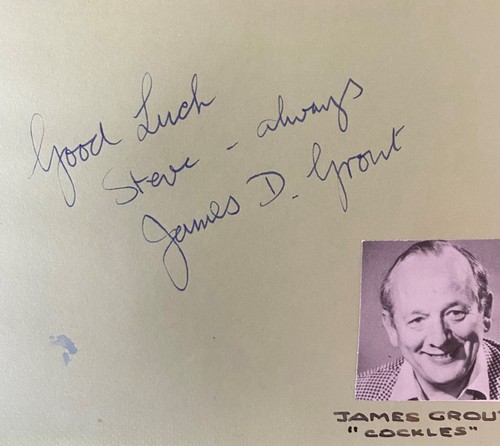 Good Luck
Steve - always
James D. Grout
JAMES GROUT
"COCKLES"